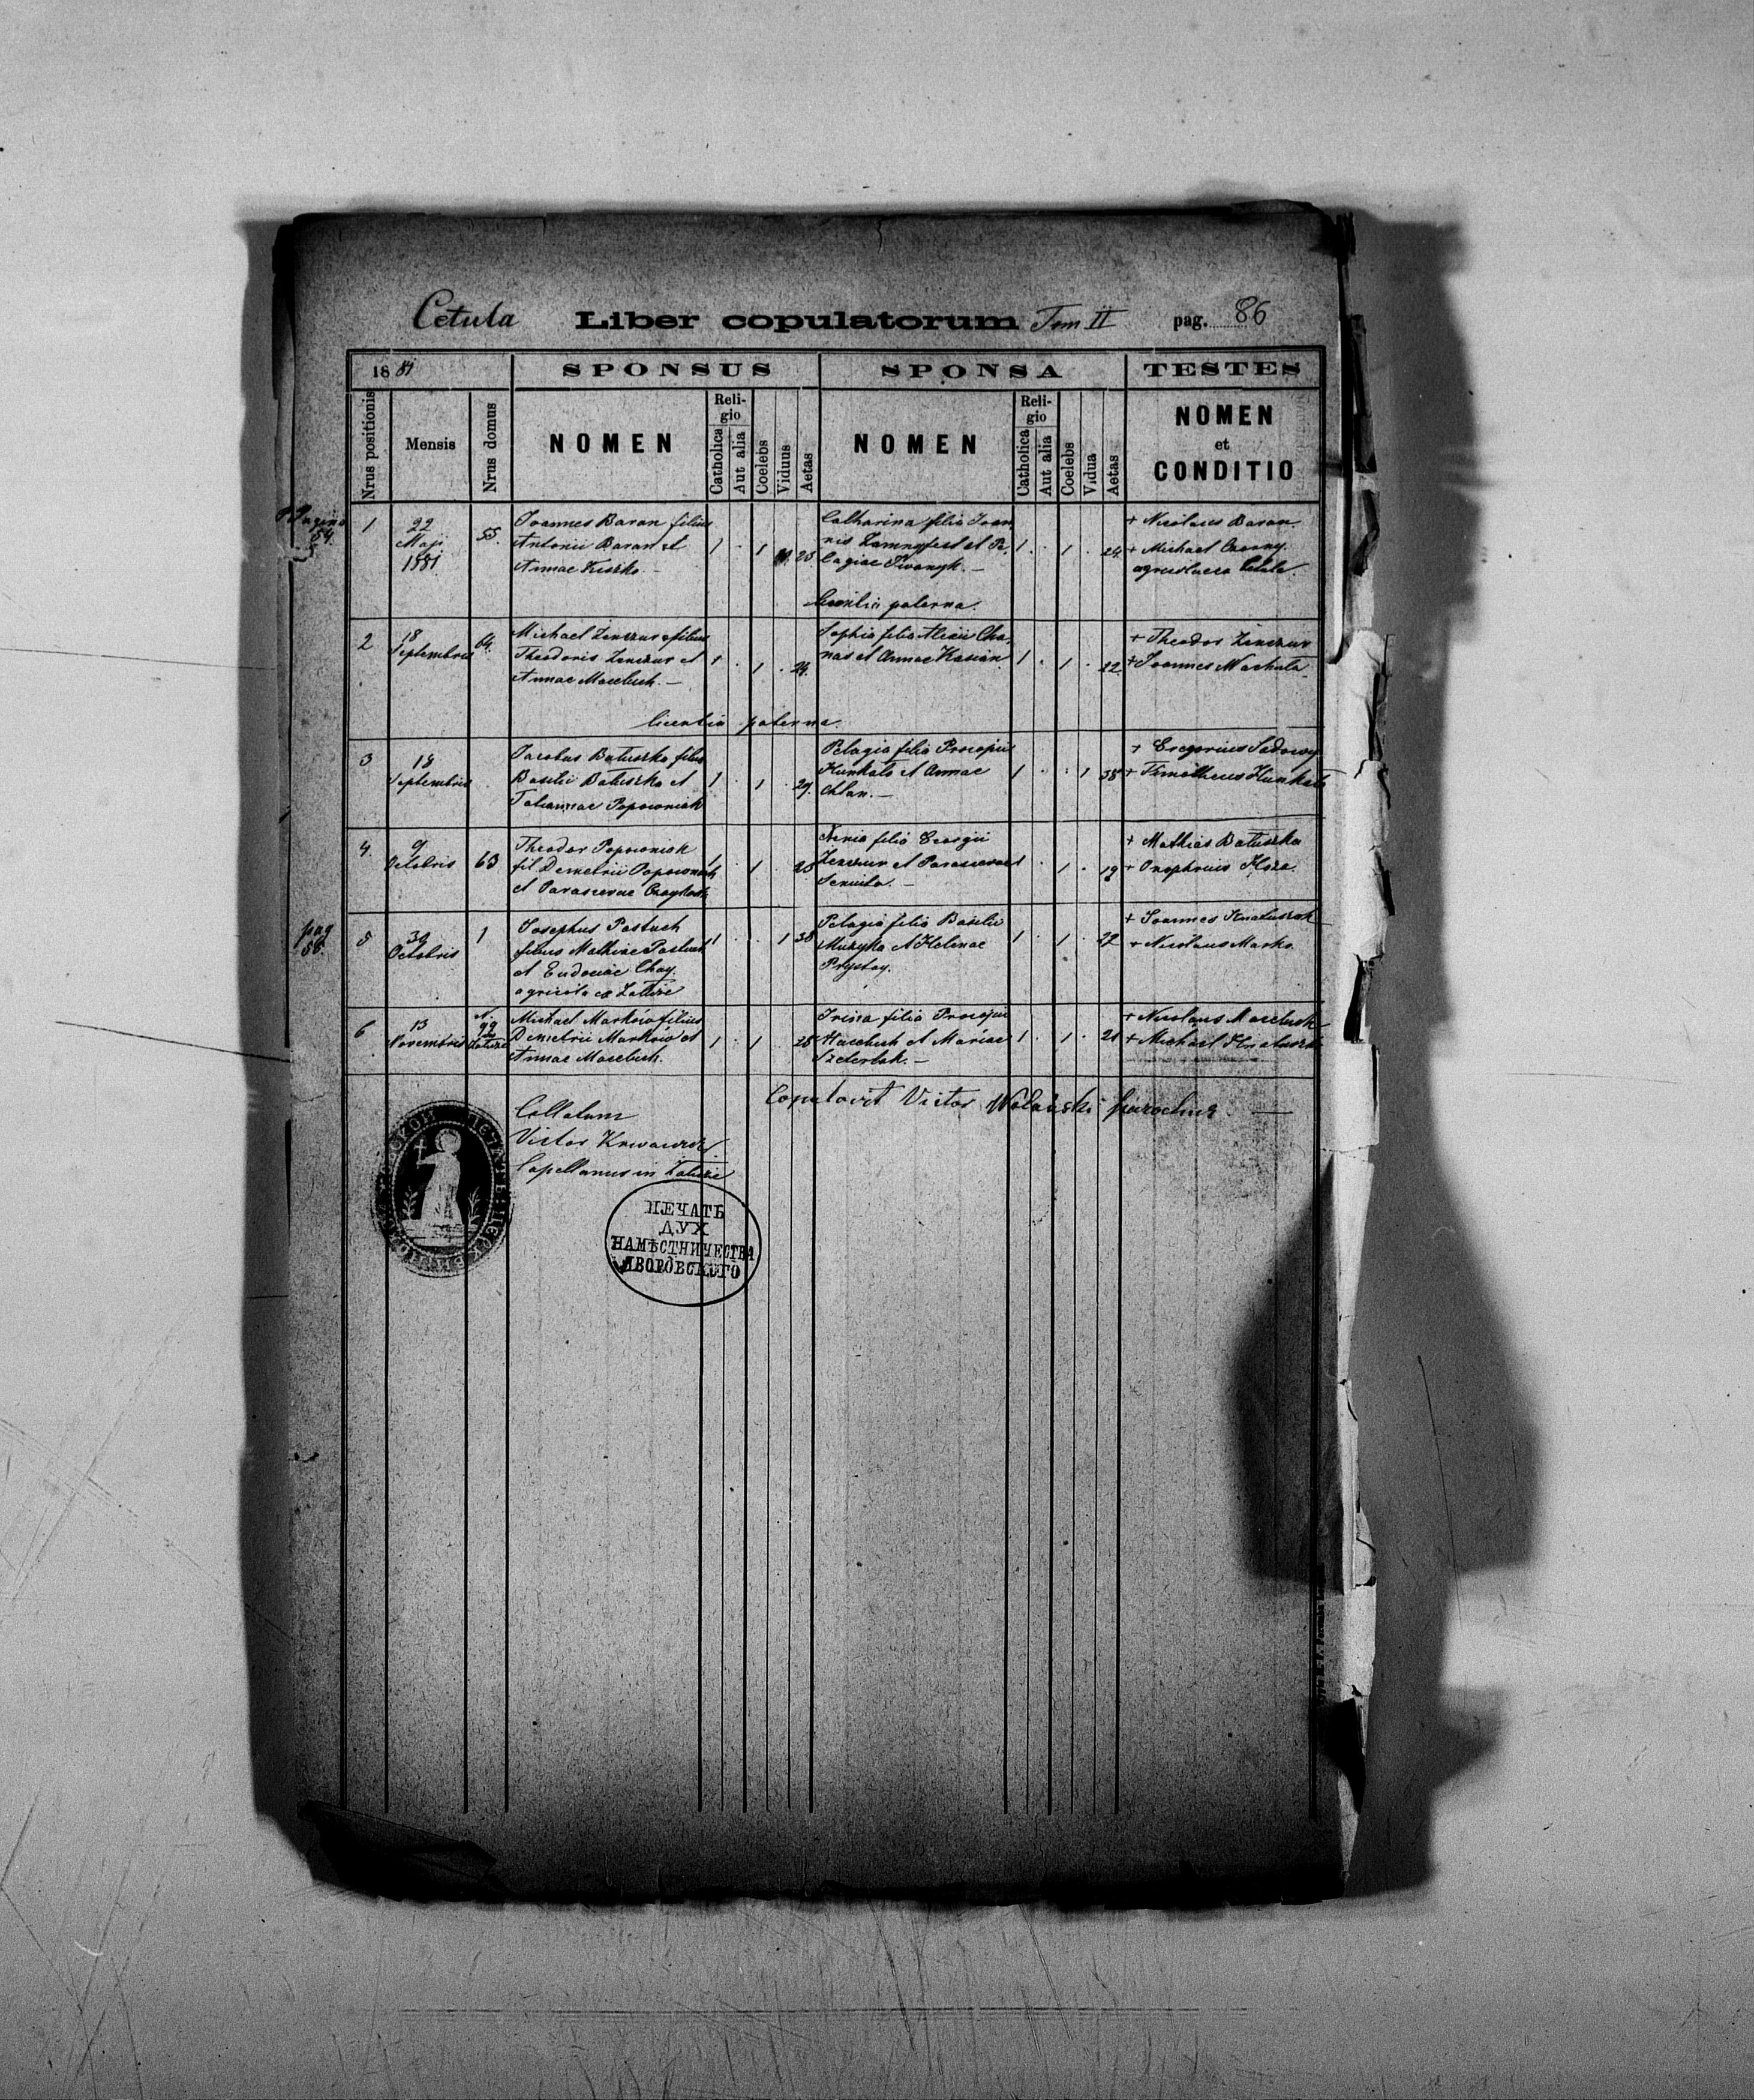 Cetula Liber copulatorum Tom II pag. 86
18 81 SPONSUS SPONSA TESTES
Nrus positionis Mensis Nrus domus NOMEN Religio Catholica Aut alia Coelebs Viduus Aetas NOMEN Religio Catholica Aut alia Coelebs Vidua Aetas NOMEN et CONDITIO
1
22
Maji
1881
55.
Joannes Baran filius
Antonii Baran et
Annae
1 . 1
Catharina filia Joan
nis et Pe
lagiae
1 . 1 . 24
+ Nicolaus Baran
+ Michael Czorny
agricolae Cetula
licentia paterna.
2
18
Septembris
64.
Michael Zenczur filius
Theodoris Zenczur et
Annae Maceluch. —
1 . 1 . 24.
Sophia filia Alexii Cha
nas et Annae Kasian
1 . 1 . 22
+ Theodor Zenczur
+ Joannes Machula
licentia paterna.
3
18
Septembris
Jacobus Batiuszka filius
Basilii Batiuszka et
Tatiannae Popowniak
1 . 1 . 29.
Pelagia filia Procopii
Hunkalo et Annae
Chlan. —
1 . . 1 38
+ Gregorius Sadowy
+ Timotheus Hunkalo
4.
9
Octobris
63
Theodor Popowniak
fil Demetrii Popowniak
et Parascevae
1 . 1 . 28
filia Georgii
Zenczur et Parascevae
1 . 1 . 19
+ Mathias Batiuszka
+ Onophrius
pag
58.
5
30
Octobris
1
Josephus Pastuch
filius Mathiae Pastuch
et Eudociae Chay.
agricola ex Zaluże
1 . . 1 38
Pelagia filia Basilii
Muzyka et Helenae
Prystay.
1 . 1 . 22
+ Joannes Hnatuszak
+ Nicolaus Marko
6
13
Novembris
N.
92
Zaluże
Michael Markow filius
Demetrii Markow et
Annae Maceluch.
1 . 1 . 28
Irina filia Procopii
Maceluch et Mariae
1 . 1 . 21
+ Nicolaus Maceluch
+ Michael
Copulavit Victor Wolański parochus. —
Collatum
Victor
Capellanus in Zaluże
ПЕЧАТЬ
ДУХ
НАМѢСТНИЧЕСТВА
ЯВОРОВСКОГО